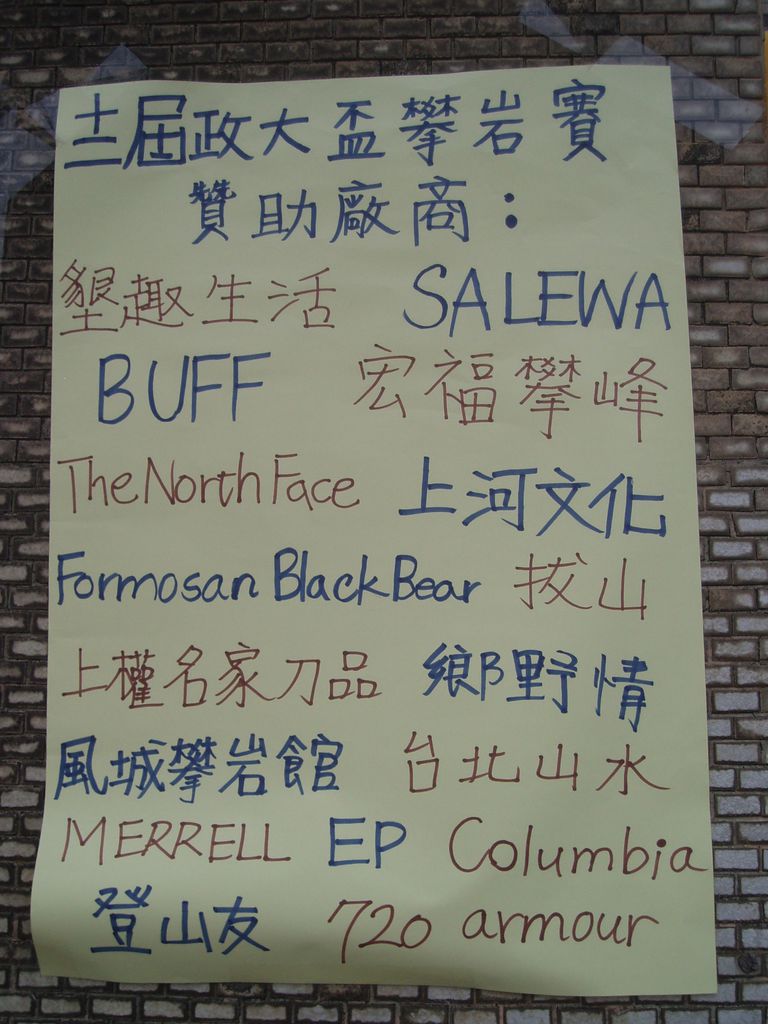 十二屆政大盃攀岩賽
贊助廠商：
墾趣生活 SALEWA
BUFF 宏福攀峰
The North Face 上河文化
Formosan Black Bear 拔山
上權名家刀品 鄉野情
風城攀岩館 台北山水
MERRELL EP Columbia
登山友 720 armour